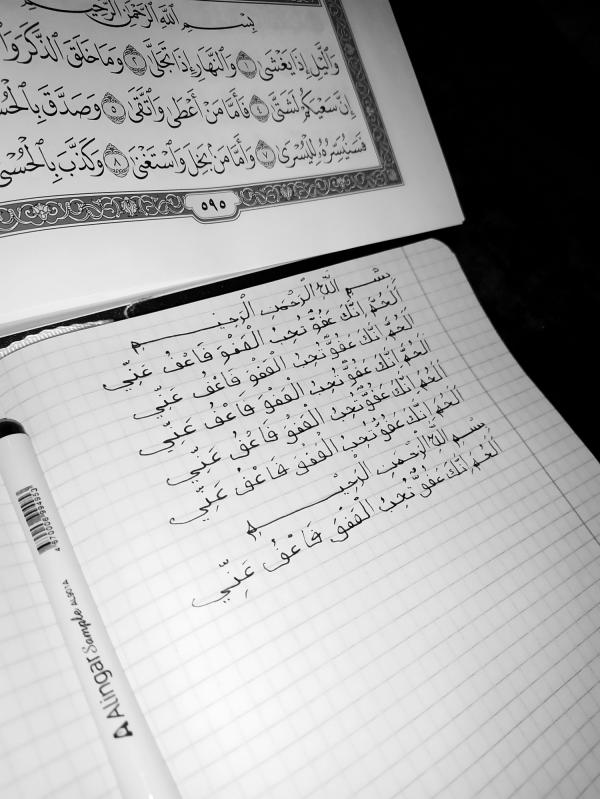 بِسْمِ اللَّهِ الرَّحْمَٰنِ الرَّحِيمِ
وَاللَّيْلِ إِذَا يَغْشَىٰ ١ وَالنَّهَارِ إِذَا تَجَلَّىٰ ٢ وَمَا خَلَقَ الذَّكَرَ وَا
إِنَّ سَعْيَكُمْ لَشَتَّىٰ ٤ فَأَمَّا مَنْ أَعْطَىٰ وَاتَّقَىٰ ٥ وَصَدَّقَ بِالْحُسْ
فَسَنُيَسِّرُهُ لِلْيُسْرَىٰ ٧ وَأَمَّا مَنْ بَخِلَ وَاسْتَغْنَىٰ ٨ وَكَذَّبَ بِالْحُسْنَى
٥٩٥
بِسْمِ اللَّهِ الرَّحْمَنِ الرَّحِيمِ
اَلْحُمَّ اِنَّكَ عَفُوٌّ تُحِبُّ الْعَفْوَ فَاعْفُ عَنِّي
اَلْحُمَّ اِنَّكَ عَفُوٌّ تُحِبُّ الْعَفْوَ فَاعْفُ عَنِّي
اَلْحُمَّ اِنَّكَ عَفُوٌّ تُحِبُّ الْعَفْوَ فَاعْفُ عَنِّي
اَلْحُمَّ اِنَّكَ عَفُوٌّ تُحِبُّ الْعَفْوَ فَاعْفُ عَنِّي
اَلْحُمَّ اِنَّكَ عَفُوٌّ تُحِبُّ الْعَفْوَ فَاعْفُ عَنِّي
بِسْمِ اللَّهِ الرَّحْمَنِ الرَّحِيمِ
اَلْحُمَّ اِنَّكَ عَفُوٌّ تُحِبُّ الْعَفْوَ فَاعْفُ عَنِّي
Alingar Sample